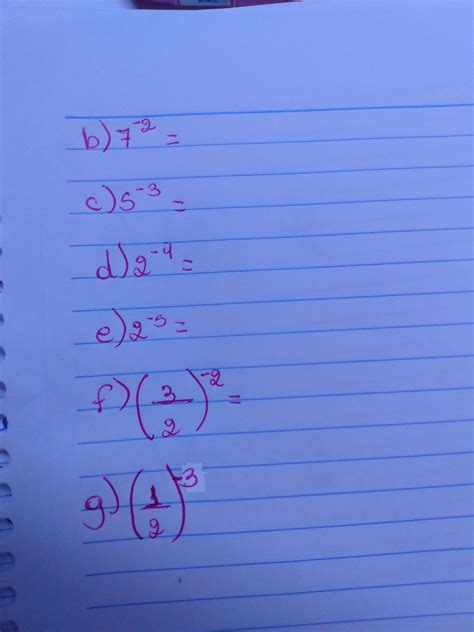 b) 7⁻² =
c) 5⁻³ =
d) 2⁻⁴ =
e) 2⁻⁵ =
f) (3/2)⁻² =
g) (1/2)⁻³